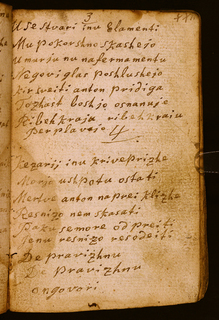 3
Use stvari inu Elamenti
Mu pokorshno skasheio
U morju nu nafermamentu
Negovi glas poshlushejo
kir sveiti anton pridiga
Toshast boshje osnanuje
Ribe kkraja ribeh kraiu
Perplavajo 4
kezarji inu krive Prizhe
Morjo ushpotu ostati
Mertve anton na prei klizhe
Resnizo nem skasati
odpreiti
Jenu resnizo resodeiti
De pravizhnu
De pravizhnu
ongovori